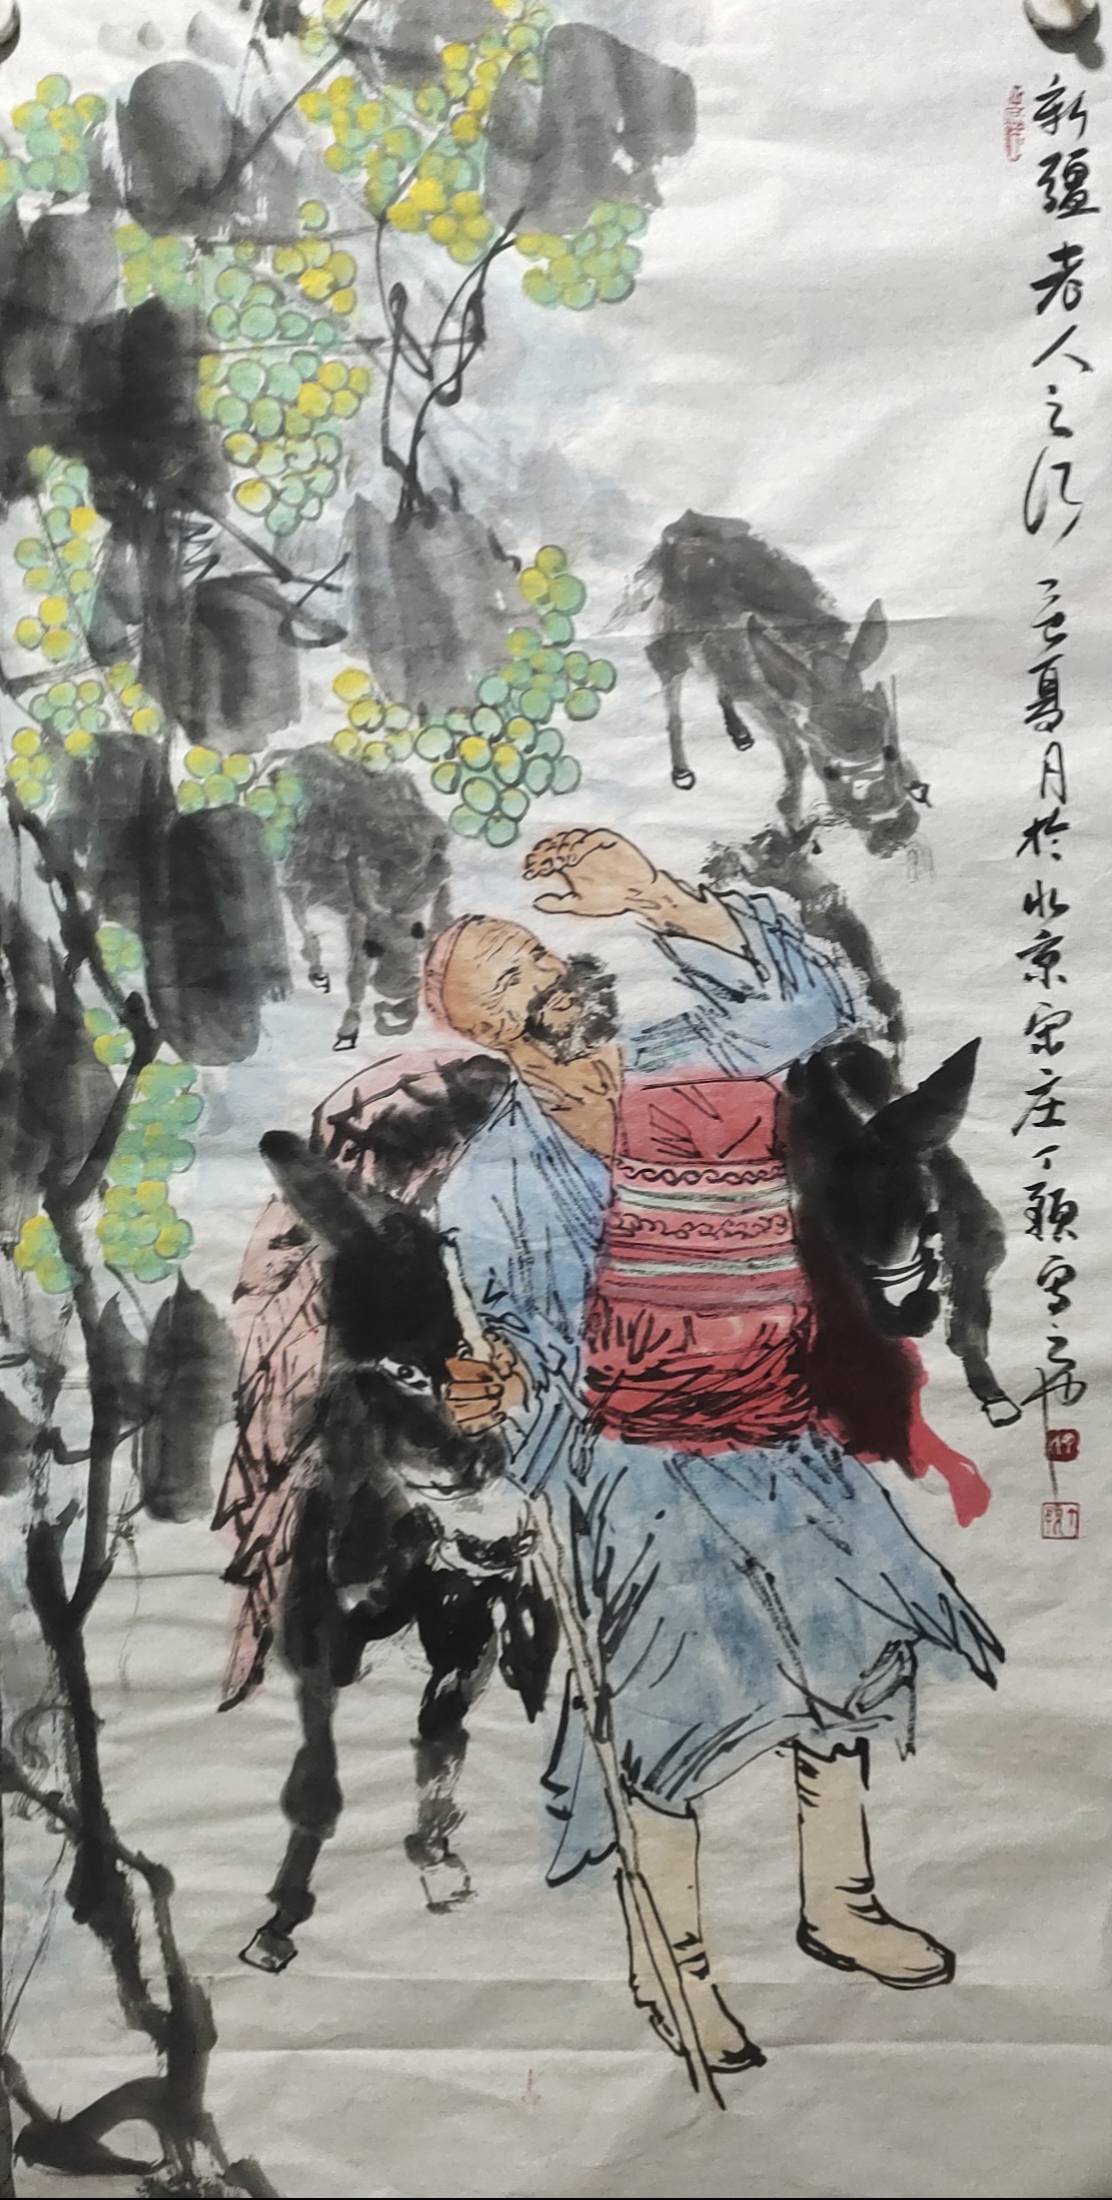 新疆老人之行 乙巳夏月於北京宋庄丁颖写之也